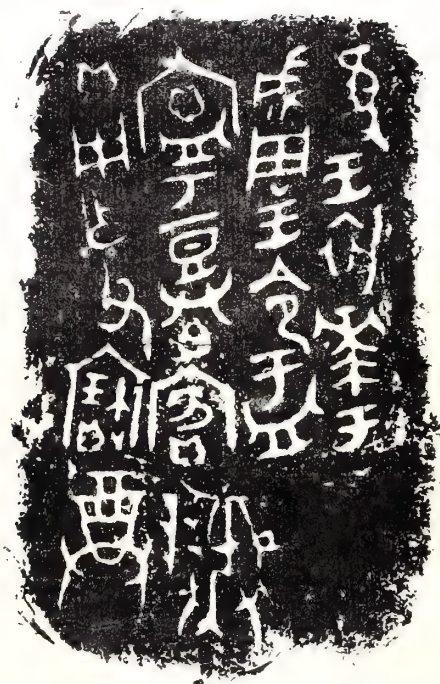 隹王初𠦪于
成周王令盂
寧登白賓
貝用乍父寶尊彝